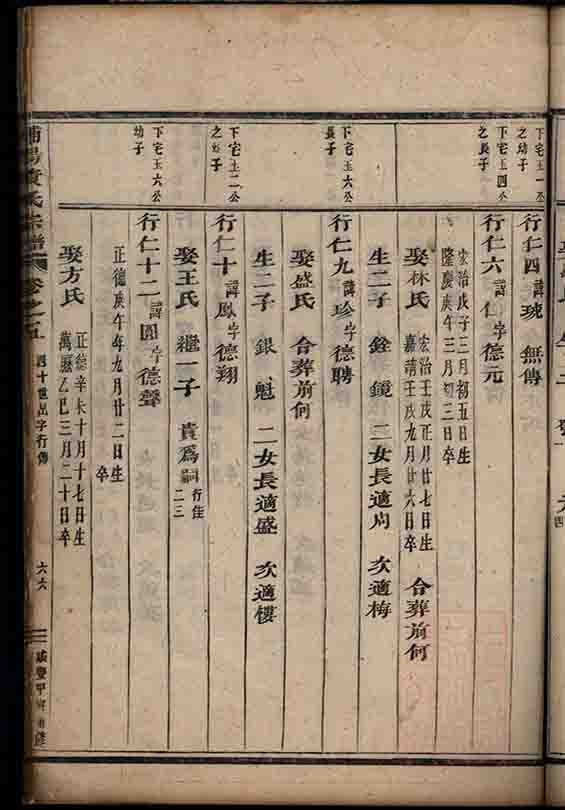 下宅玉一公
之幼子
行仁四諱琥 無傳
下宅玉四公
之長子
行仁六諱仁字德元
宏治戊子三月初五日生
隆慶庚午三月初三日卒
娶林氏
宏治壬戌正月廿七日生
嘉靖壬戌九月廿六日卒
合葬前何
生二子 銓 鏡 二女長適周 次適梅
下宅玉六公
長子
行仁九諱珍字德聘
娶盛氏 合葬前何
生二子 銀 魁 二女長適盛 次適樓
下宅玉二公
之 子
行仁十諱鳳字德翔
娶王氏 繼一子 貴爲嗣
二三
下宅玉六公
幼子
行仁十二諱圓字德聲
正德庚午年九月廿二日生
卒
娶方氏
正德辛未十月十七日生
萬曆乙巳三月二十日卒
黃氏宗譜
卷之五
四十世出字行傳
六六
咸豐甲寅